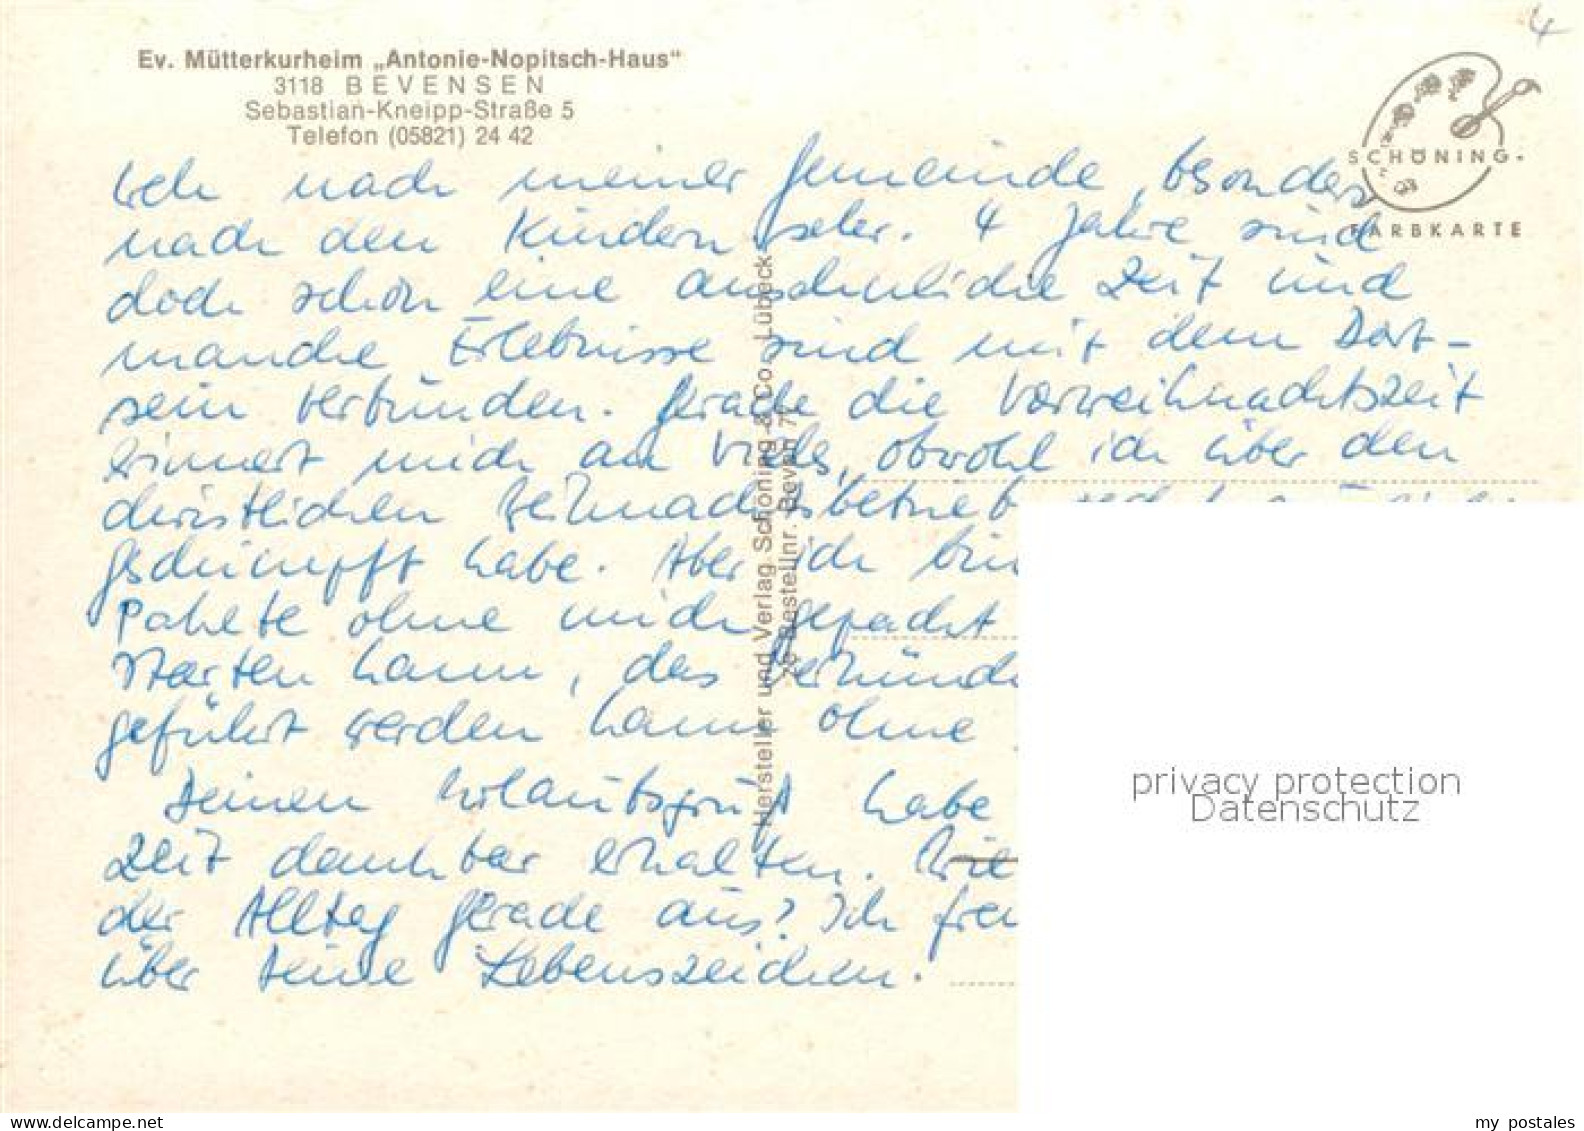 4
Ev. Mütterkurheim „Antonie-Nopitsch-Haus“
3118 BEVENSEN
Sebastian-Kneipp-Straße 5
Telefon (05821) 24 42
SCHÖNING
FARBKARTE
weh nach meiner Gemeinde, besonders
nach den Kindern sehr. 4 Jahre sind
doch schon eine ansehnliche Zeit und
manche Erlebnisse sind mit dem Dort-
sein verbunden. Gerade die Vorweihnachtszeit
erinnert mich an vieles, obwohl ich über den
christlichen Weihnachtsbetrieb
geschimpft habe. Aber ich bin
Pakete ohne mich gepackt
Starten kann, das
geführt werden kann ohne
Deinen Urlaubsgruß habe
Zeit dankbar erhalten. Wie
der Alltag gerade aus? Ich
über Deine Lebenszeichen.
Hersteller und Verlag Schöning & Co., Lübeck
Bestellnr. Beven 7
privacy protection
Datenschutz
my postales